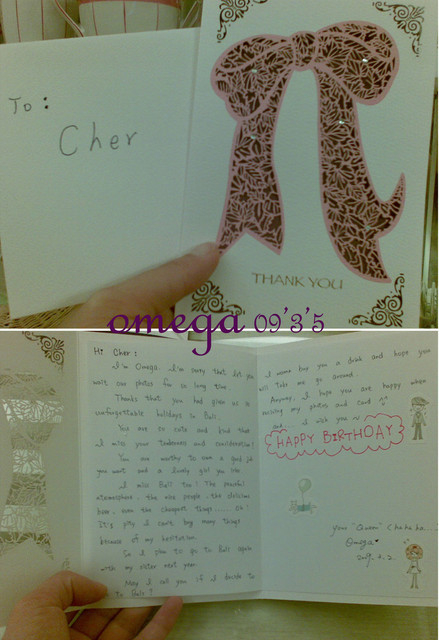 To :
Cher
THANK YOU
omega 09'3'5
Hi Cher :
I'm Omega. I'm sorry that let you
wait our photos for so long time.
Thanks that you had plan us a
unforgettable holidays in Bali.
You are so cute and kind that
I miss your tenderness and consideration!
You are worthy to own a good job
you want and a lovely girl you like
I miss Bali too! The peaceful
atmosphere, the nice people, the delicious
beer, even the cheapest things..... oh!
It's pity I can't buy many things
because of my hesitation.
So I plan to go to Bali again
with my sister next year.
May I call you if I decide to
to Bali?
I wanna buy you a drink and hope you
will take me go around.
Anyway, I hope you are happy when
reciving my photos and card
and I wish you ~
HAPPY BIRTHDAY
your "Queen" Cha ha ha
Omega